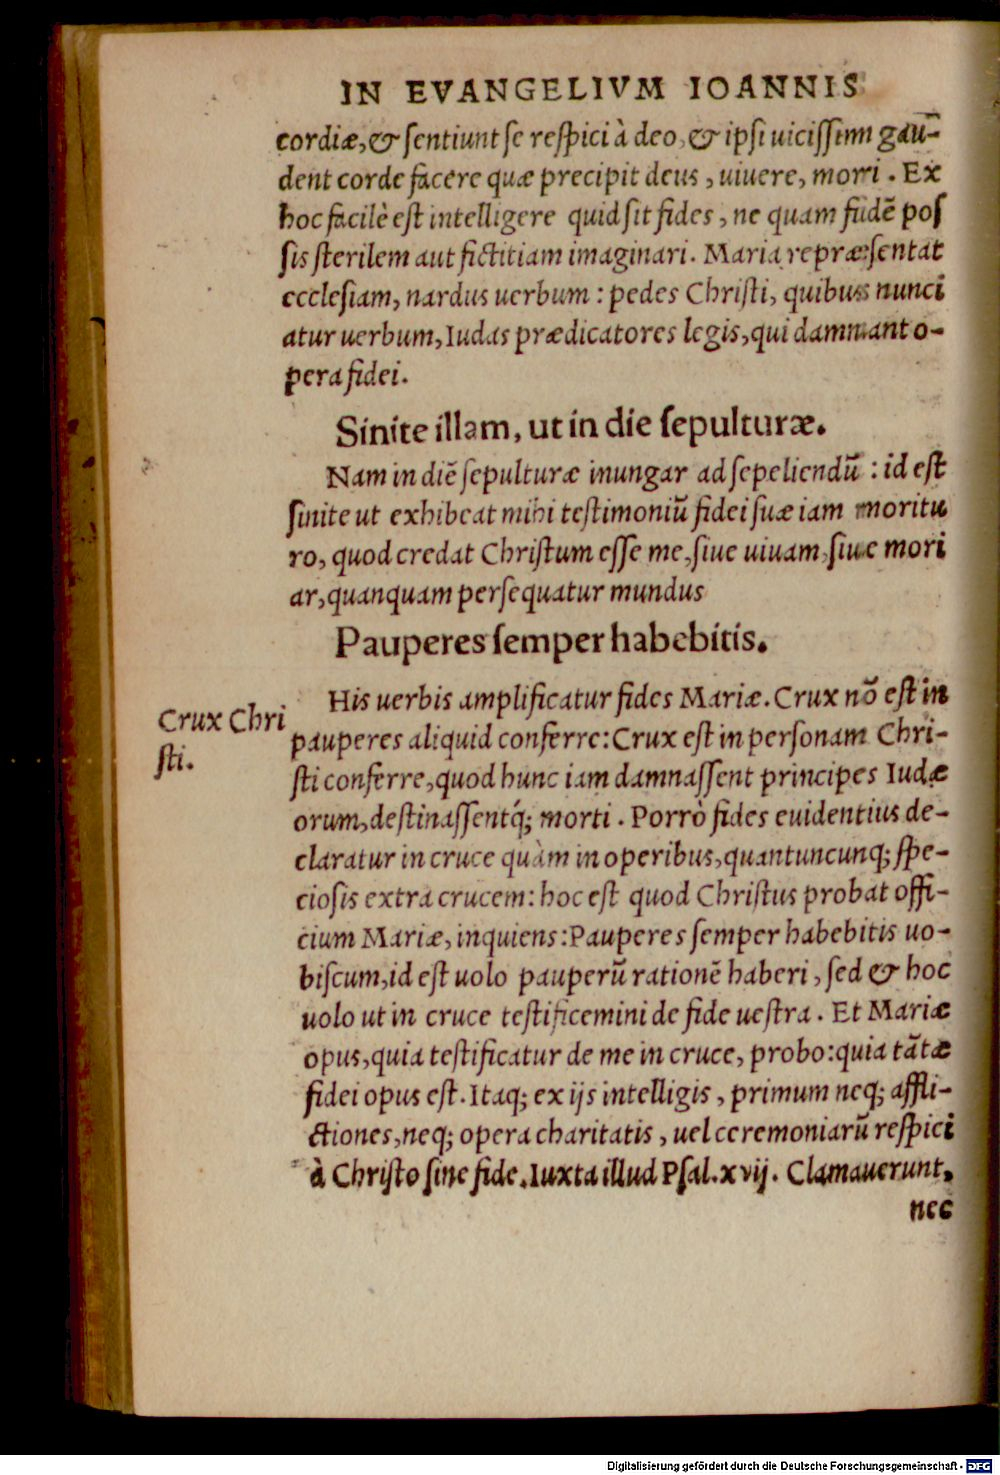 IN EVANGELIVM IOANNIS
cordiæ, & sentiunt se respici à deo, & ipsi uicissim gau̅-
dent corde facere quæ precipit deus, uiuere, mori. Ex
hoc facilè est intelligere quid sit fides, ne quam fidẽ pos
sis sterilem aut fictitiam imaginari. Maria repræsentat
ecclesiam, nardus uerbum: pedes Christi, quibus nunci
atur uerbum, Iudas prædicatores legis, qui damnant o-
pera fidei.
Sinite illam, ut in die sepulturæ.
Nam in diẽ sepulturæ inungar ad sepeliendũ: id est
sinite ut exhibeat mihi testimoniũ fidei suæ iam moritu
ro, quod credat Christum esse me, siue uiuam, siue mori
ar, quanquam persequatur mundus
Pauperes semper habebitis.
His uerbis amplificatur fides Mariæ. Crux nõ est in
Crux Chri
sti.
pauperes aliquid conferre: Crux est in personam Chri-
sti conferre, quod hunc iam damnassent principes Iudæ
orum, destinassentq́; morti. Porrò fides euidentius de-
claratur in cruce quàm in operibus, quantuncunq; spe-
ciosis extra crucem: hoc est quod Christus probat offi-
cium Mariæ, inquiens: Pauperes semper habebitis uo-
biscum, id est uolo pauperũ rationẽ haberi, sed & hoc
uolo ut in cruce testificemini de fide uestra. Et Mariæ
opus, quia testificatur de me in cruce, probo: quia tãtæ
fidei opus est. Itaq; ex ijs intelligis, primum neq; affli-
ctiones, neq; opera charitatis, uel ceremoniarũ respici
à Christo sine fide. Iuxta illud Psal. xvij. Clamauerunt,
nec
Digitalisierung gefördert durch die Deutsche Forschungsgemeinschaft - DFG